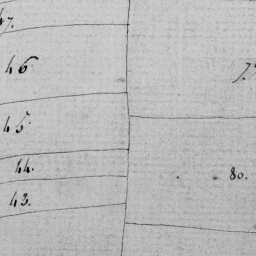 47.
46
45.
44.
43.
80.